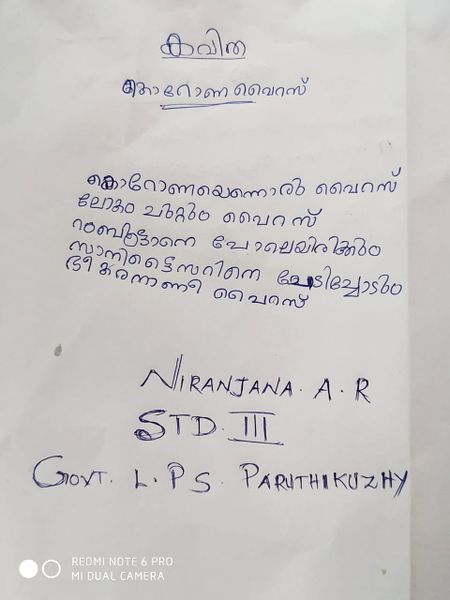 കവിത
കൊറോണ വൈറസ്
കൊറോണയെന്നൊരു വൈറസ്
ലോകം ചുറ്റും വൈറസ്
റംബൂട്ടാനെ പോലെയിരിക്കും
സാനിട്ടൈസറിനെ പേടിച്ചോടും
ഭീകരനാണീ വൈറസ്
NIRANJANA. A. R
STD. III
GOVT. L. P S. PARUTHIKUZHY
REDMI NOTE 6 PRO
MI DUAL CAMERA